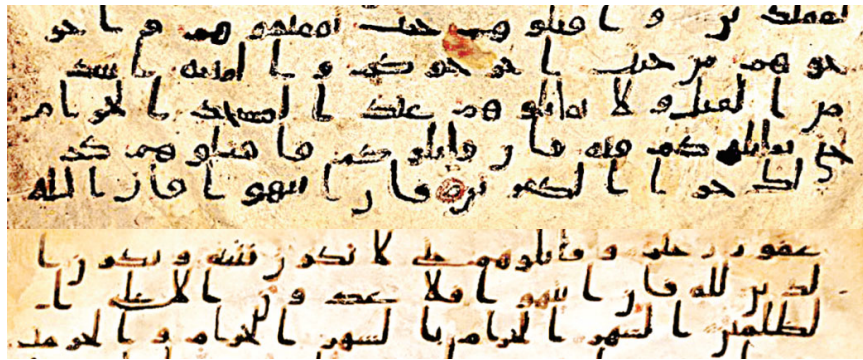 لمعتدين و اقتلوهم حيث ثقفتموهم و اخر
جوهم من حيث اخرجوكم و الفتنه اشد
من القتل و لا تقاتلوهم عند المسجد الحرام
حتى يقاتلوكم فيه فان قاتلوكم فاقتلوهم كذ
لك جزا الكفرين فان انتهوا فان الله
غفور رحيم و قاتلوهم حتى لا تكون فتنه و يكون ا
لدين لله فان انتهوا فلا عدون الا على ا
لظلمين الشهر الحرام بالشهر الحرام و الحرمت